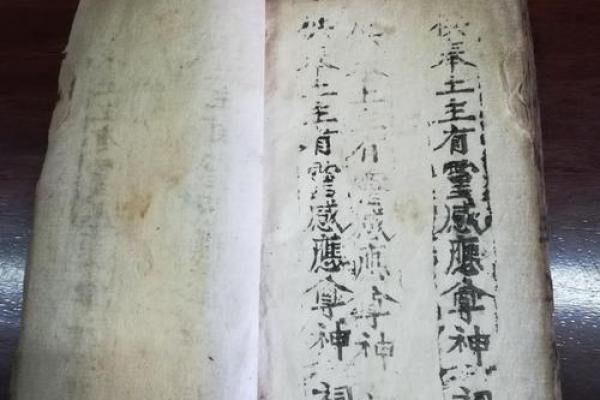 供奉土主有靈感應尊神
供奉土主有靈感應尊神
供奉土主有靈感應尊神